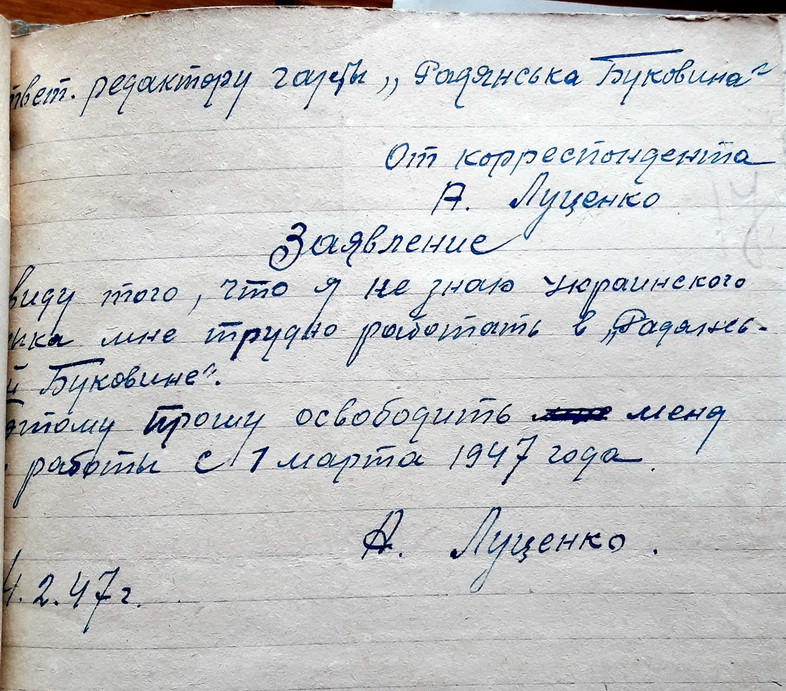 твет. редактору газеты „Радянська Буковина"
От корреспондента
А. Луценко
Заявление
виду того, что я не знаю украинского
ыка мне трудно работать в „Радянсь-
й Буковине".
этому прошу освободить меня
работы с 1 марта 1947 года.
А. Луценко.
4.2.47г.